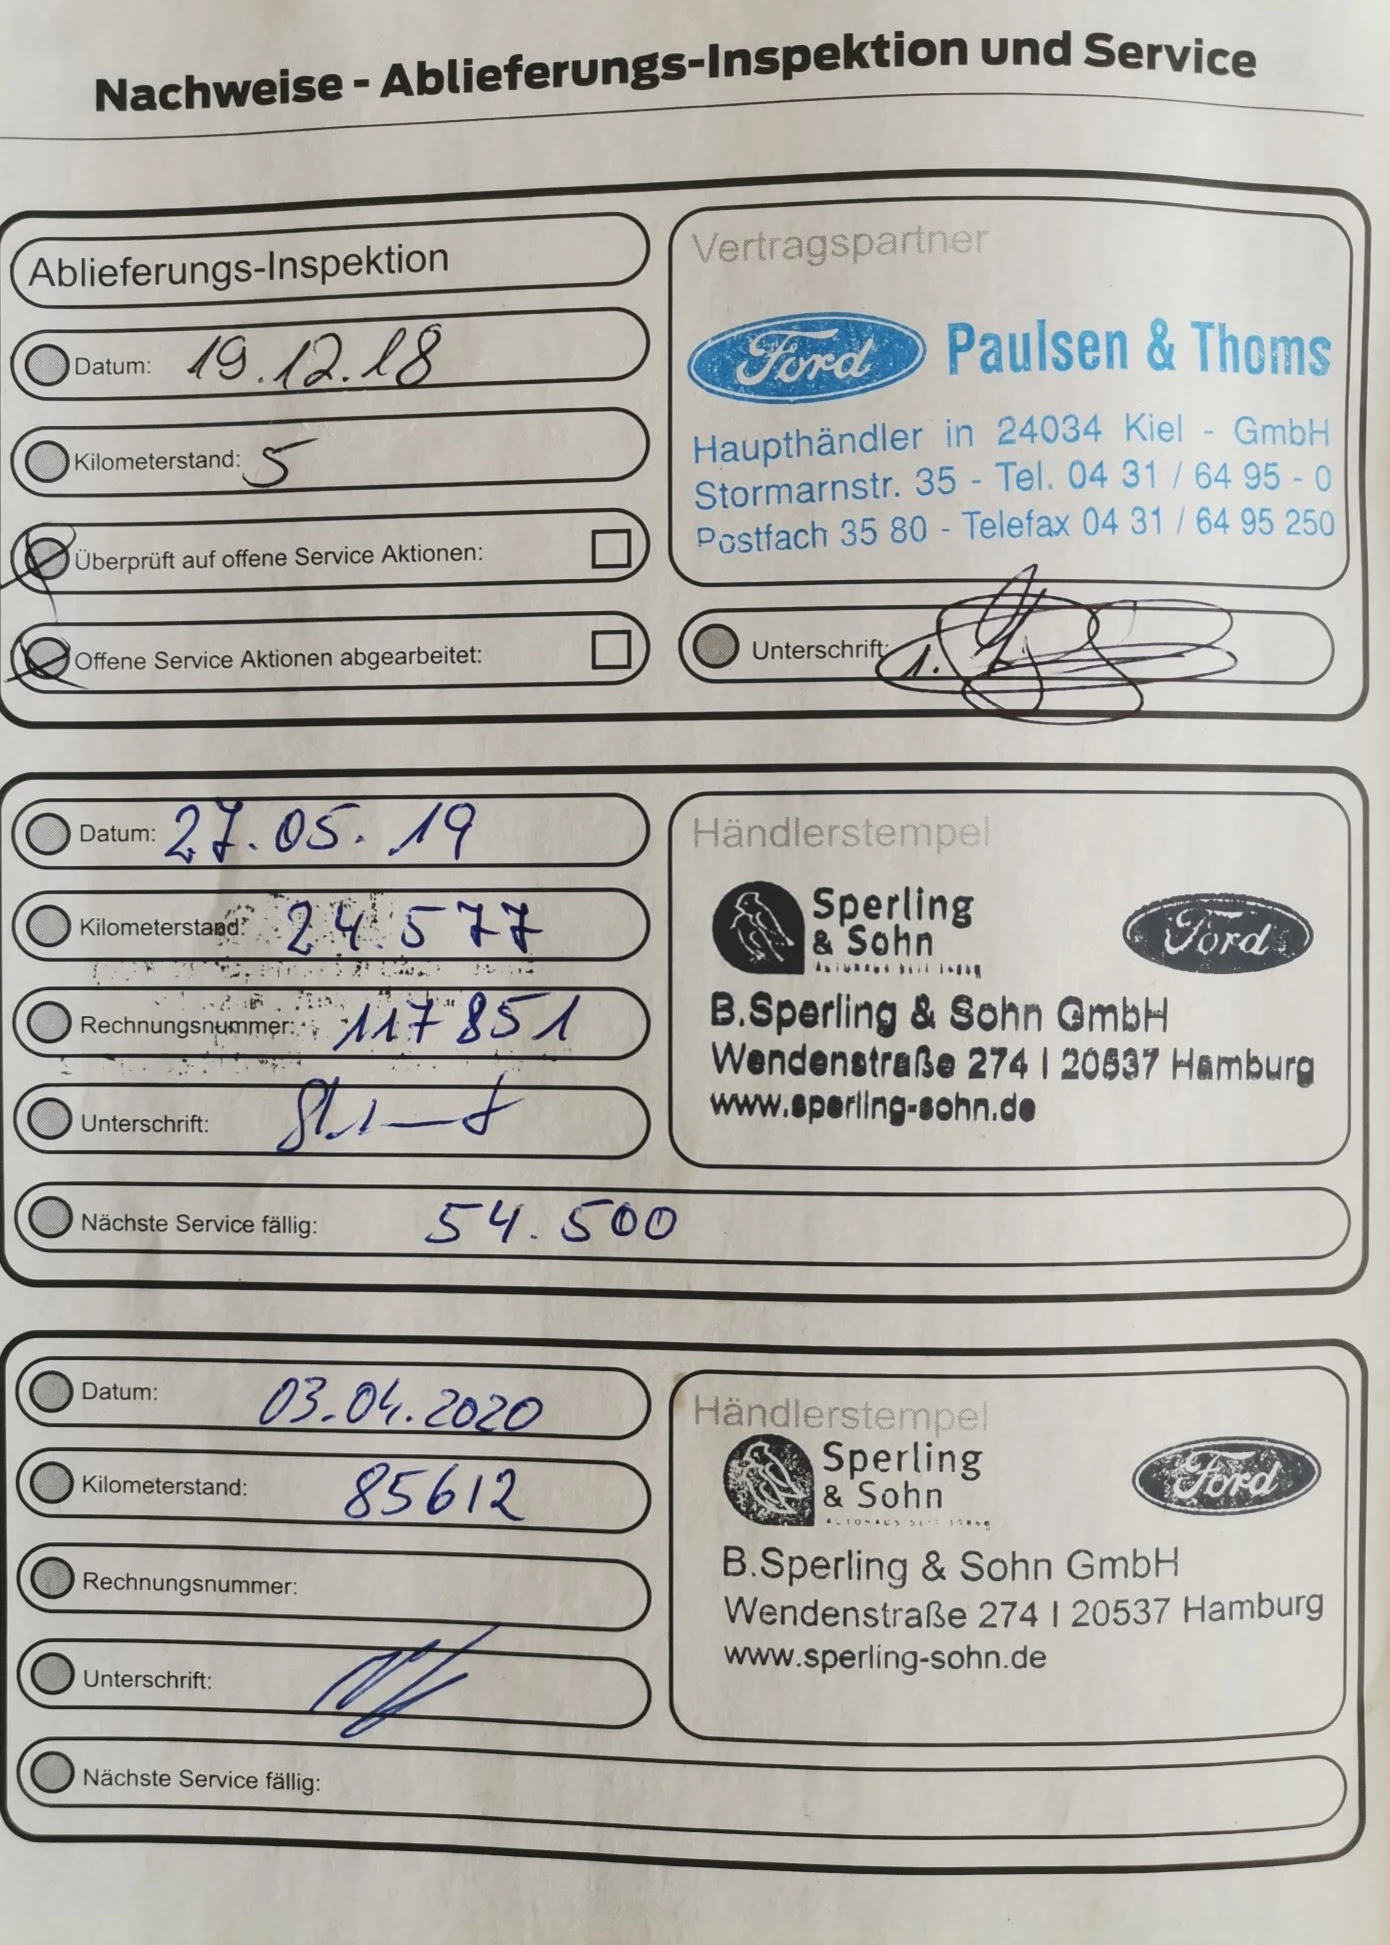 Nachweise - Ablieferungs-Inspektion und Service
Ablieferungs-Inspektion
Datum: 19.12.18
Kilometerstand: 5
Überprüft auf offene Service Aktionen:
Offene Service Aktionen abgearbeitet:
Vertragspartner
Ford Paulsen & Thoms
Haupthändler in 24034 Kiel - GmbH
Stormarnstr. 35 - Tel. 04 31 / 64 95 - 0
Postfach 35 80 - Telefax 04 31 / 64 95 250
Unterschrift:
Datum: 27.05.19
Kilometerstand: 24.577
Rechnungsnummer: 117851
Unterschrift:
Nächste Service fällig: 54.500
Händlerstempel
Sperling
& Sohn
Ford
B.Sperling & Sohn GmbH
Wendenstraße 274 | 20537 Hamburg
www.sperling-sohn.de
Datum: 03.04.2020
Kilometerstand: 85612
Rechnungsnummer:
Unterschrift:
Nächste Service fällig:
Händlerstempel
Sperling
& Sohn
Ford
B.Sperling & Sohn GmbH
Wendenstraße 274 | 20537 Hamburg
www.sperling-sohn.de